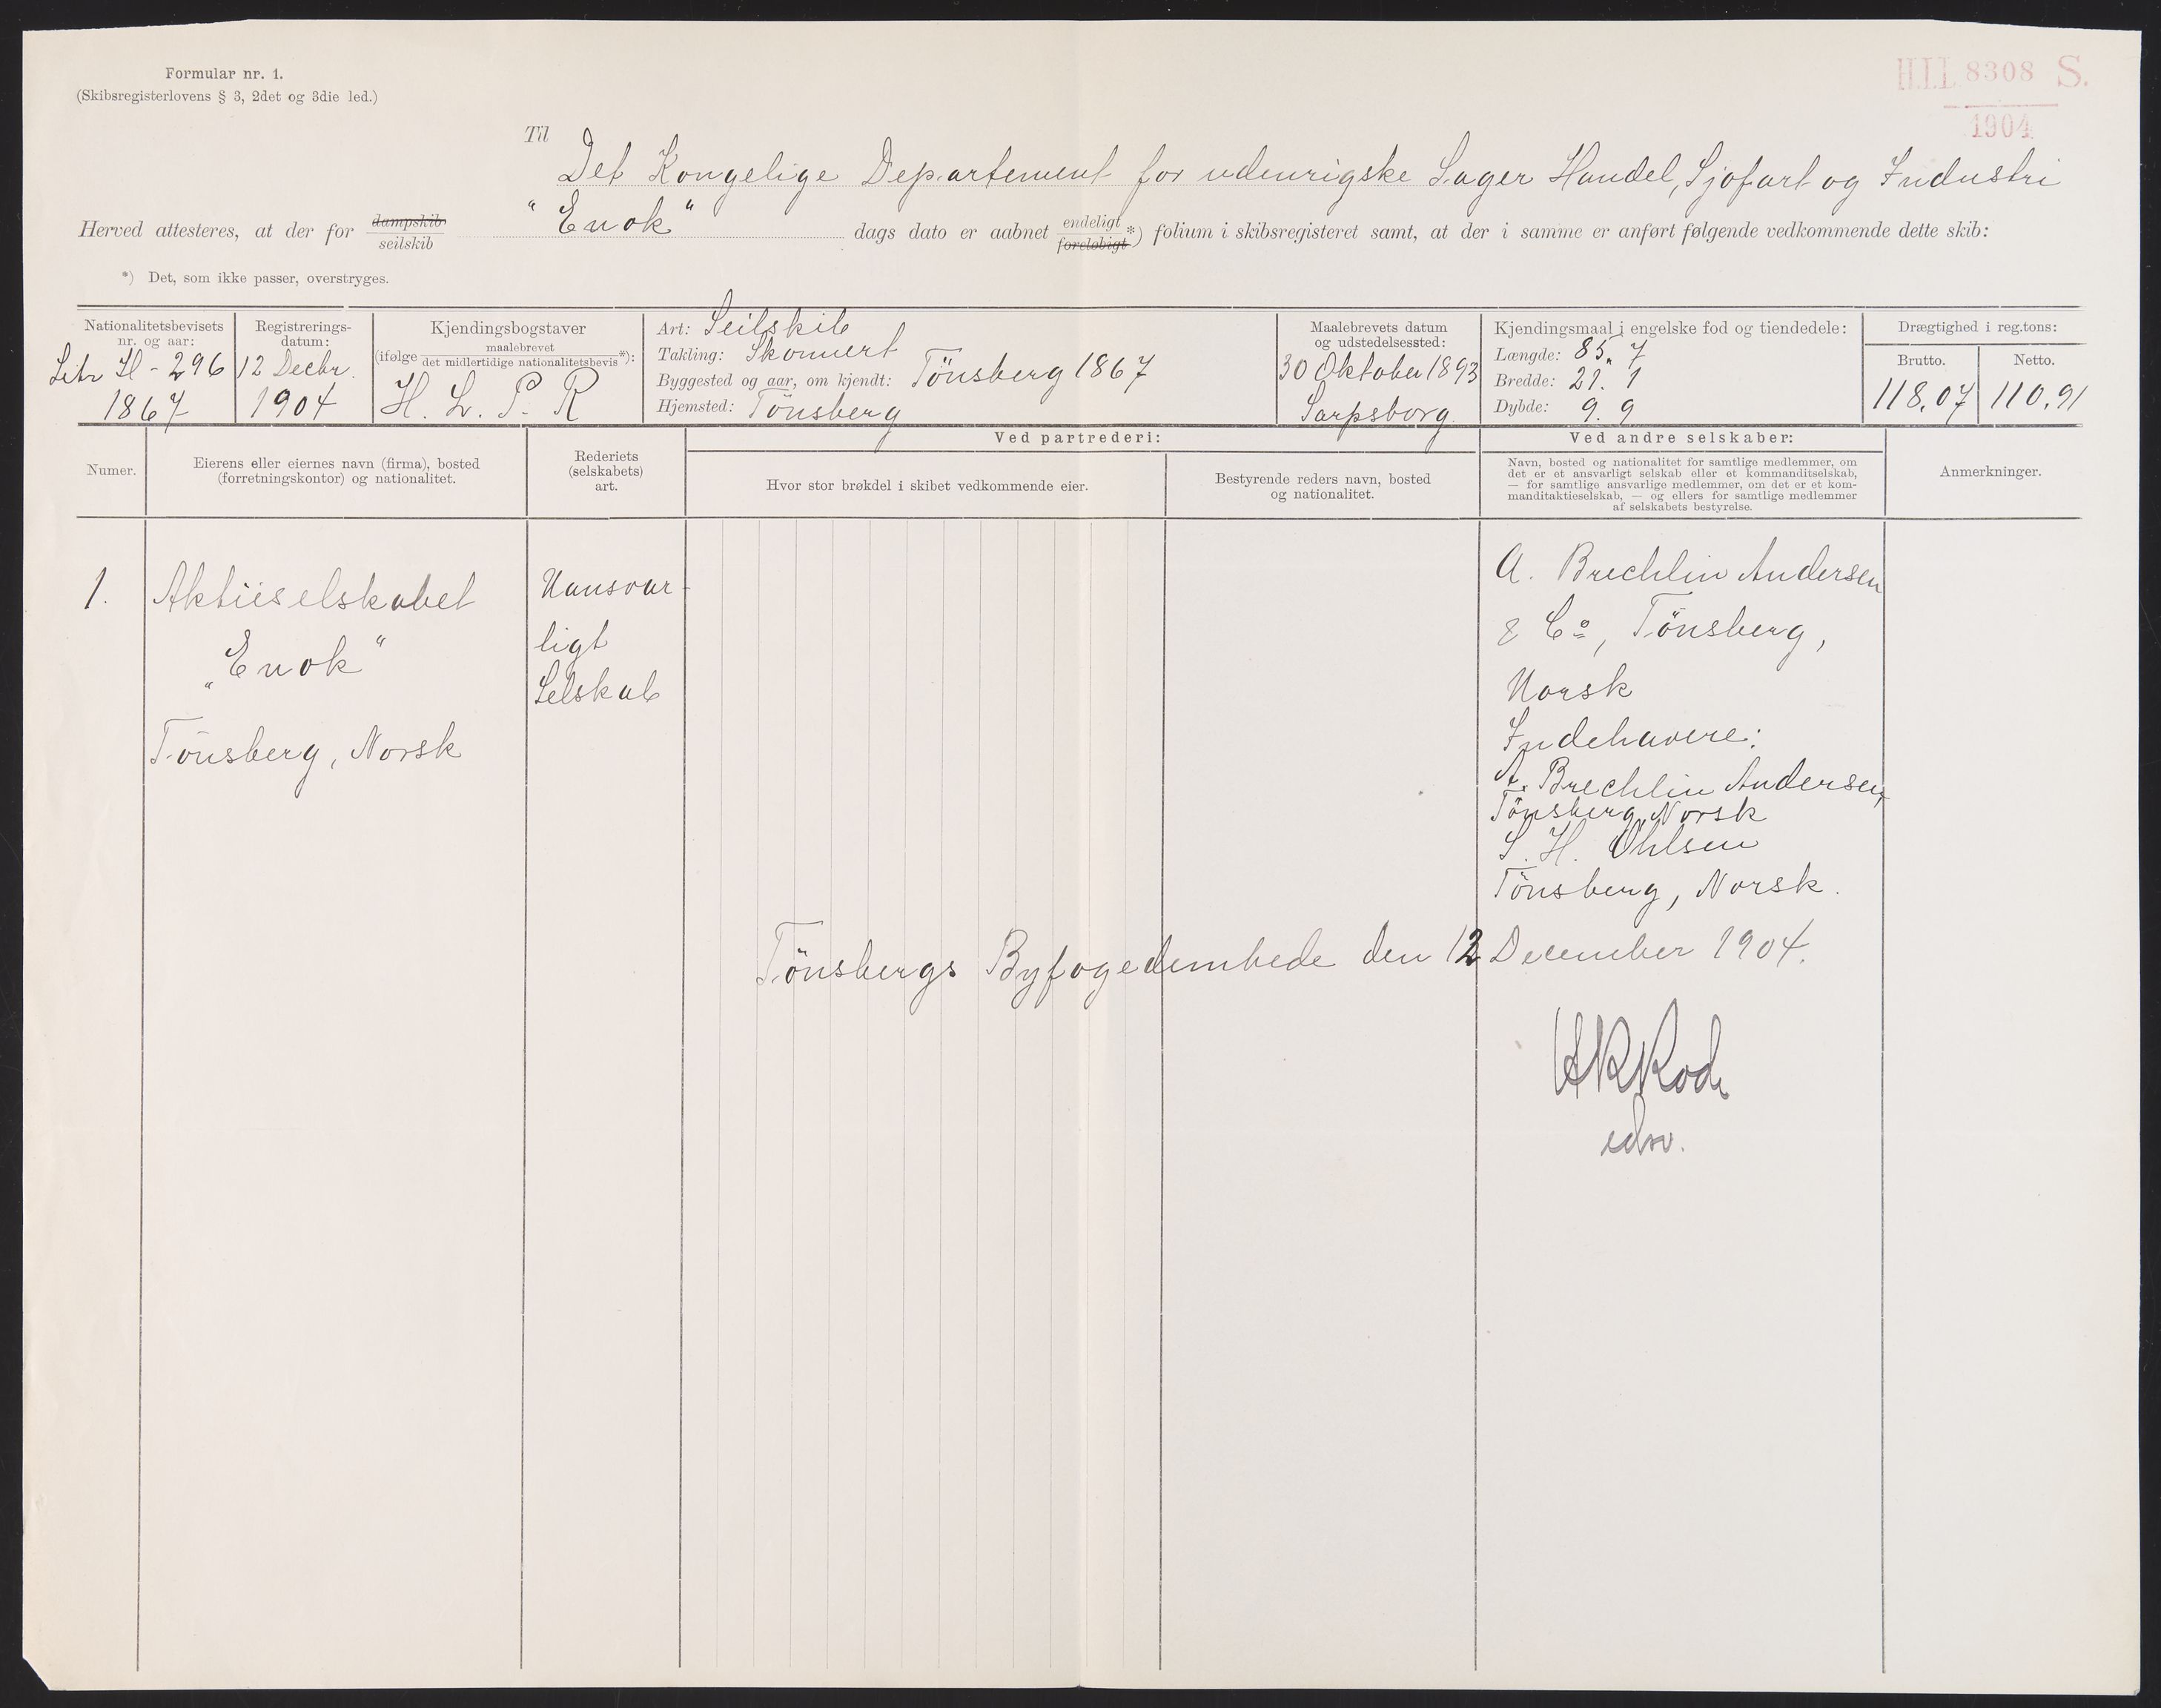 Formular nr. 1.
(Skibsregisterlovens § 3, 2det og 3die led.)
H.II 8308 S.
1904
Til
Det Kongelige Departement for udenrigske Sager Handel, Sjøfart og Industri
Herved attesteres, at der for dampskib seilskib "Enok" dags dato er aabnet endeligt foreløbigt *) folium i skibsregisteret samt, at der i samme er anført følgende vedkommende dette skib:
*) Det, som ikke passer, overstryges.
Nationalitetsbevisets nr. og aar:
Litr H - 296
1867
Registrerings-datum:
12 Decbr.
1904
Kjendingsbogstaver
(ifølge maalebrevet det midlertidige nationalitetsbevis *):
H. L. P. R
Art: Seilskib
Takling: Skonnert
Byggested og aar, om kjendt: Tönsberg 1867
Hjemsted: Tönsberg
Maalebrevets datum
og udstedelsessted:
30 Oktober 1893
Sarpsborg
Kjendingsmaal i engelske fod og tiendedele:
Længde: 85. 7
Bredde: 21. 1
Dybde: 9. 9
Drægtighed i reg.tons:
Brutto.
118.07
Netto.
110.91
Numer.
Eierens eller eiernes navn (firma), bosted
(forretningskontor) og nationalitet.
Rederiets
(selskabets)
art.
Ved partrederi:
Hvor stor brøkdel i skibet vedkommende eier.
Bestyrende reders navn, bosted
og nationalitet.
Ved andre selskaber:
Navn, bosted og nationalitet for samtlige medlemmer, om
det er et ansvarligt selskab eller et kommanditselskab,
— for samtlige ansvarlige medlemmer, om det er et kom-
manditaktieselskab, — og ellers for samtlige medlemmer
af selskabets bestyrelse.
Anmerkninger.
1.
Aktieselskabet
„Enok"
Tönsberg, Norsk
Uansvar-
ligt
Selskab
A. Brechlin Andersen
& Co, Tönsberg,
Norsk
Indehavere:
A. Brechlin Andersen,
Tönsberg, Norsk
S. H. Ohlsen
Tönsberg, Norsk.
Tönsbergs Byfogedembede den 12 December 1904.